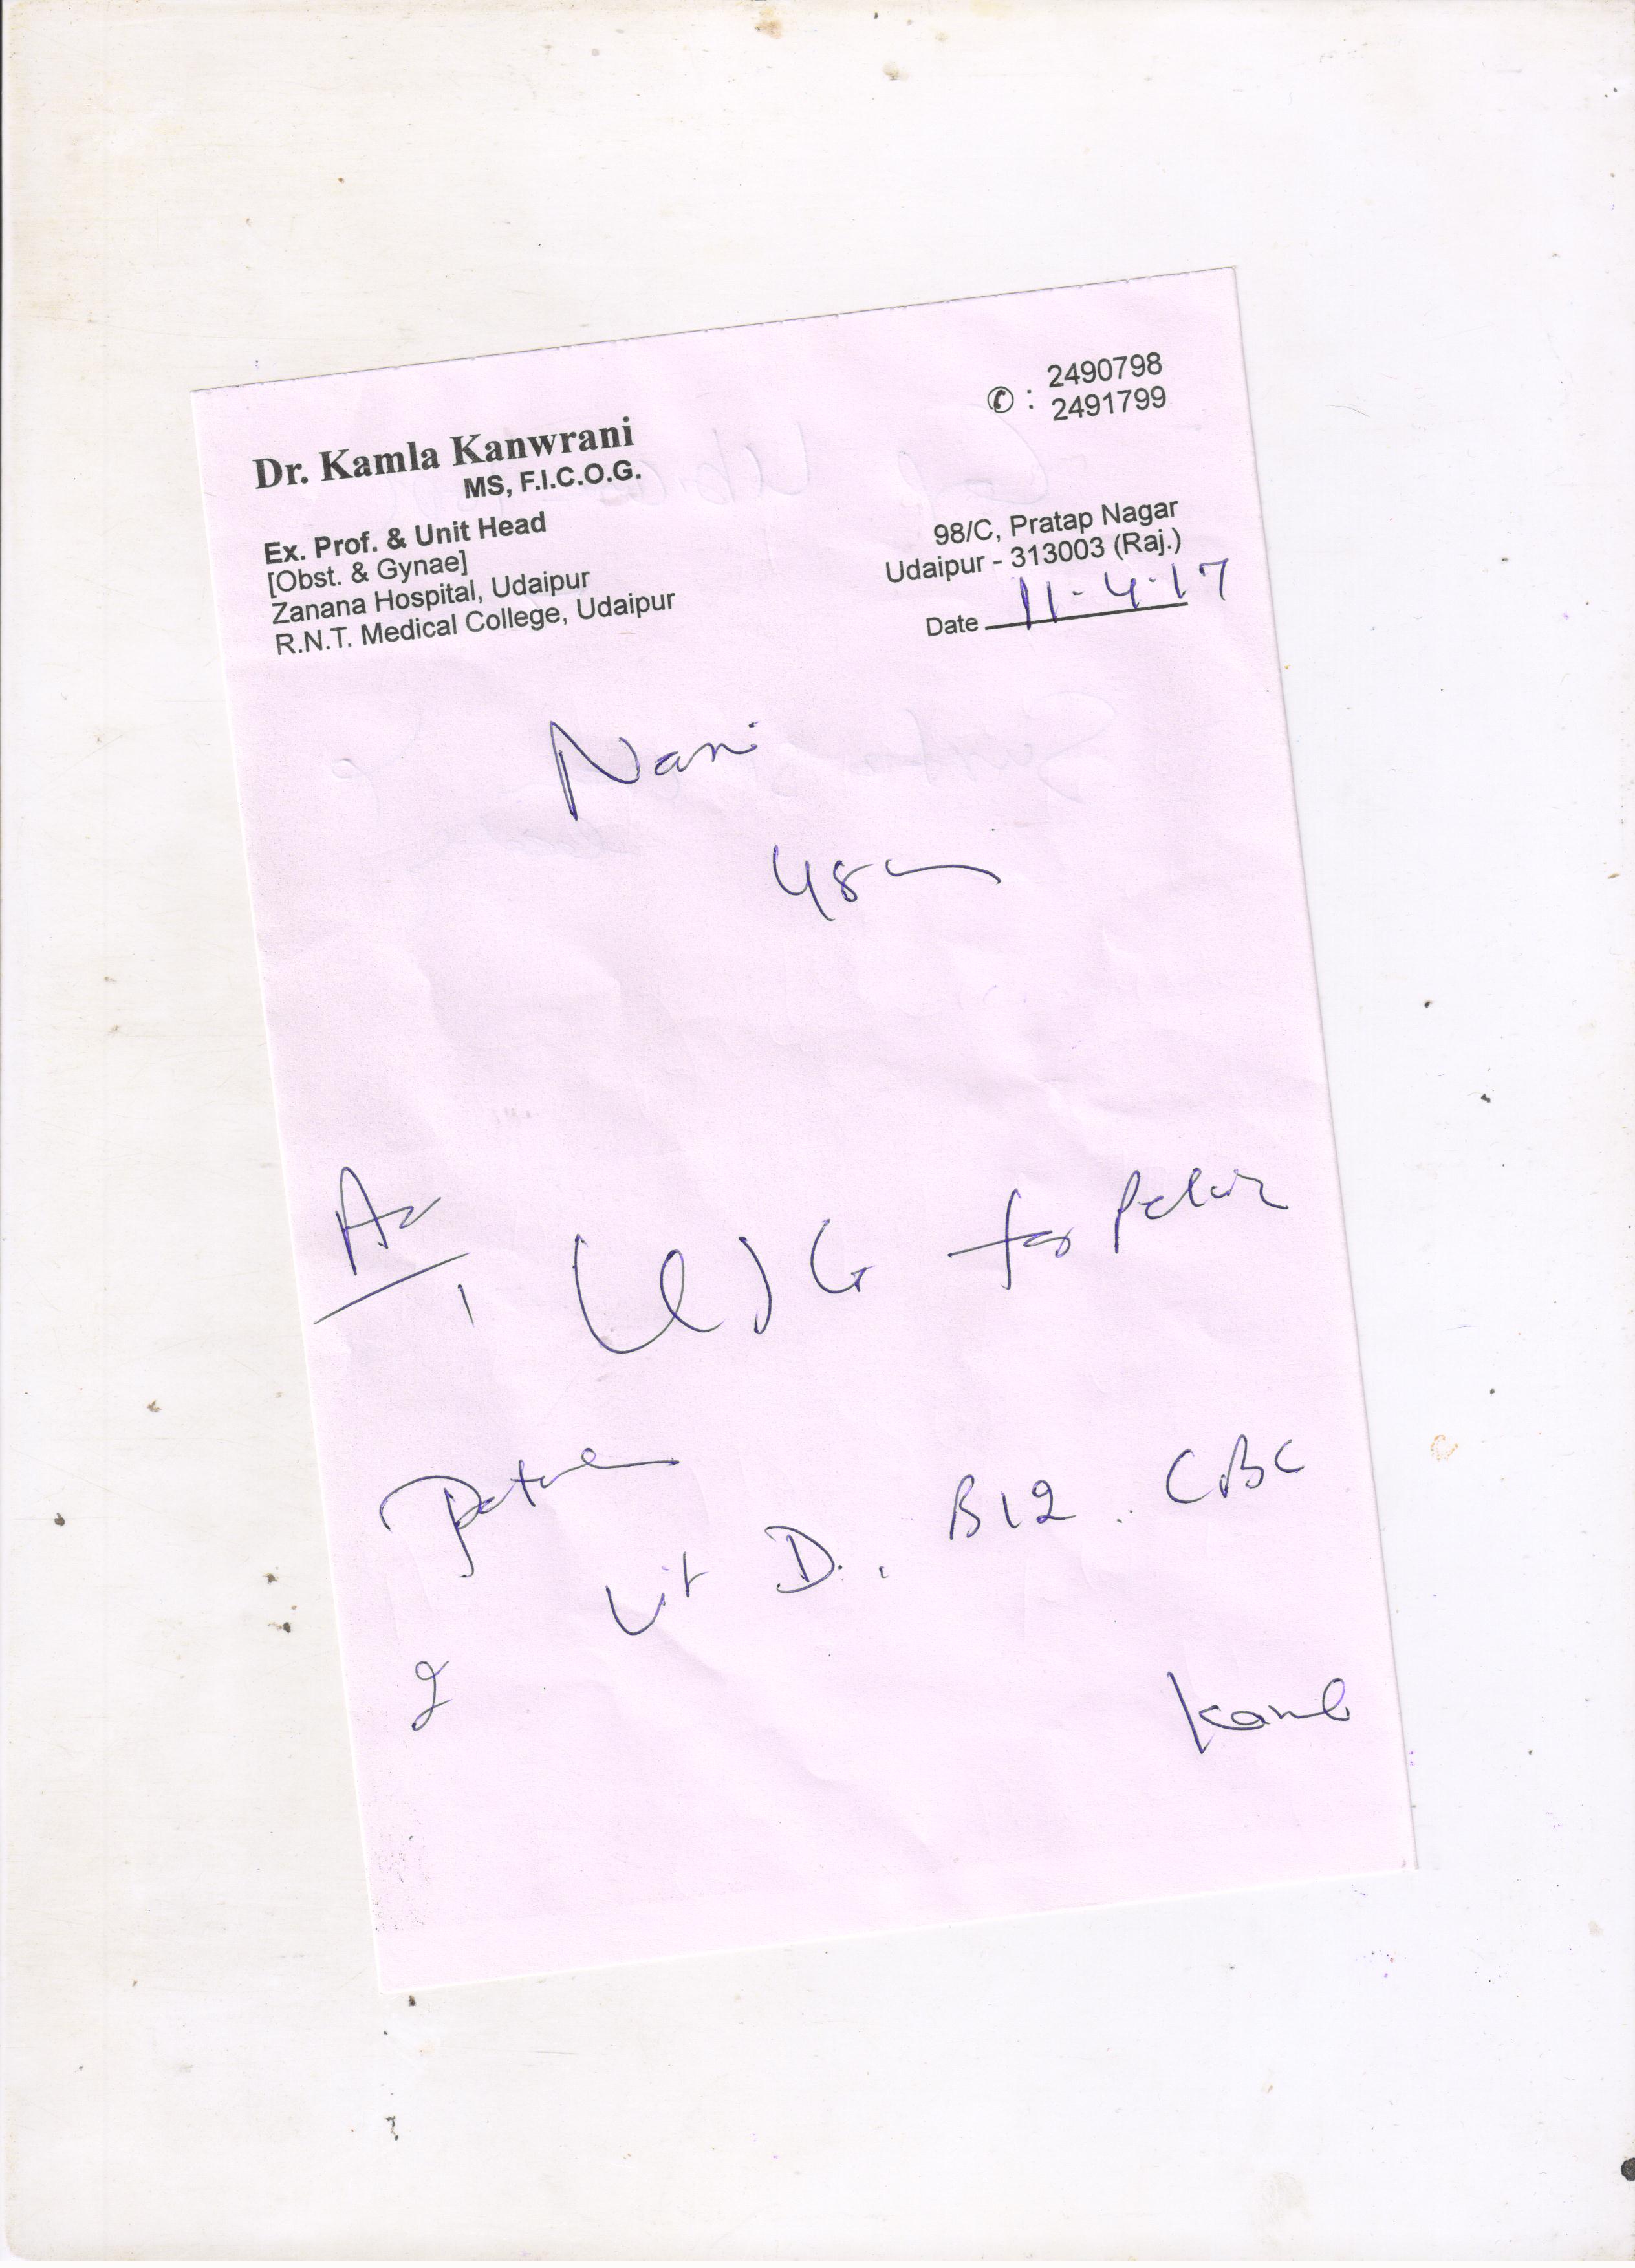 2490798
2491799
Dr. Kamla Kanwrani
MS, F.I.C.O.G.
Ex. Prof. & Unit Head
[Obst. & Gynae]
Zanana Hospital, Udaipur
R.N.T. Medical College, Udaipur
98/C, Pratap Nagar
Udaipur - 313003 (Raj.)
Date 11-4-17
48
1 USG for Pelvis
Vit D. B12 CBC
2